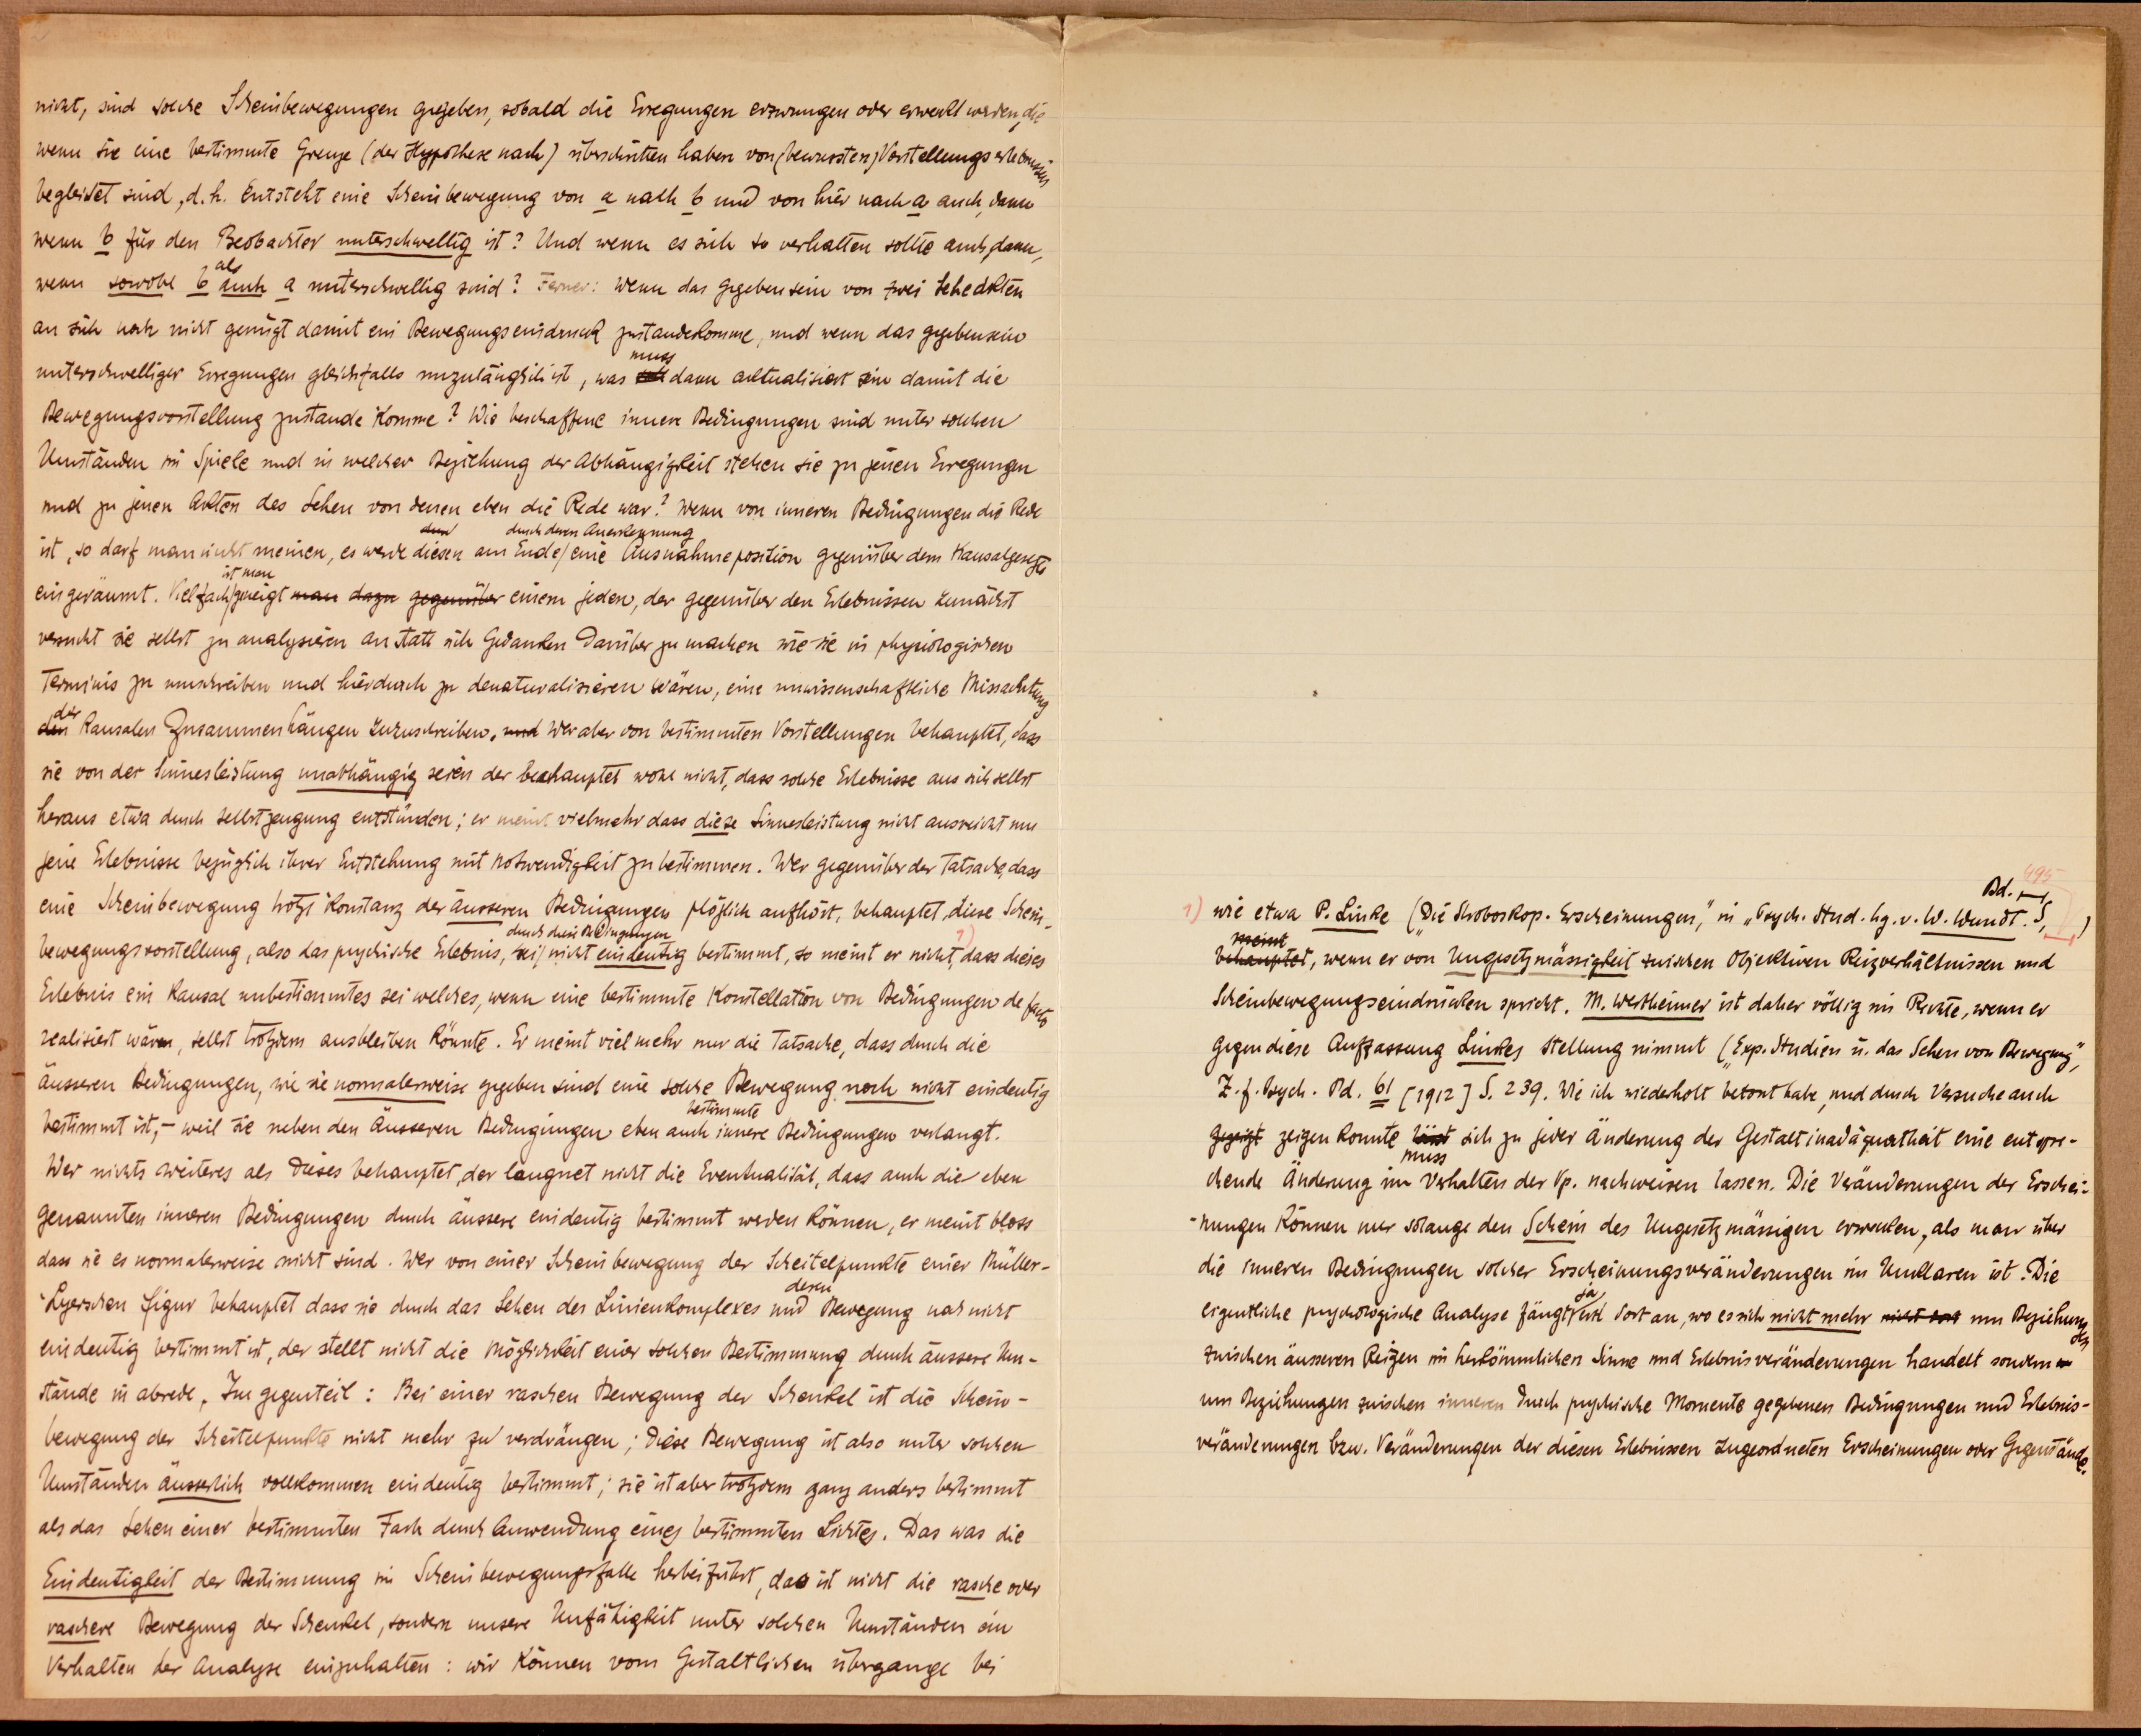 nicht, sind solche Scheinbewegungen gegeben, sobald die Erregungen erzwungen oder erweckt werden, die
wenn sie eine bestimmte Grenze (der Hypothese nach) überschritten haben von (bewussten) Vorstellungserlebnissen
begleitet sind, d. h. Entsteht eine Scheinbewegung von a nach b und von hier nach a auch dann
wenn b für den Beobachter unterschwellig ist? Und wenn es sich so verhalten sollte auch dann,
wenn sowohl b als auch a unterschwellig sind? Ferner: wenn das Gegebensein von zwei Seheakten
an sich noch nicht genügt damit ein Bewegungseindruck zustandekomme, und wenn das gegebensein
unterschwelliger Erregungen gleichfalls unzulänglich ist, was muss dann aktualisiert sein damit die
Bewegungsvorstellung zustande komme? Wie beschaffene innere Bedingungen sind unter solchen
Umständen im Spiele und in welcher Beziehung der Abhängigkeit stehen sie zu jenen Erregungen
und zu jenen Akten des Sehen von denen eben die Rede war? Wenn von inneren Bedingungen die Rede
ist, so darf man nicht meinen, es werde diesen am Ende / durch deren Anerkennung eine Ausnahmeposition gegenüber dem Kausalgesetze
eingeräumt. Vielfach / ist man geneigt man dazu gegenüber einem jeden, der gegenüber den Erlebnissen zunächst
versucht sie selbst zu analysieren anstatt sich Gedanken darüber zu machen wie sie in physiologischen
Terminis zu umschreiben und hierdurch zu denaturalisieren wären, eine unwissenschaftliche Missachtung
den der Kausalen Zusammenhängen zuzuschreiben. und Wer aber von bestimmten Vorstellungen behauptet, dass
sie von der Sinnesleistung unabhängig seien der behauptet wohl nicht, dass solche Erlebnisse aus sich selbst
heraus etwa durch selbstzeugung entstünden; er meint vielmehr dass diese Sinnesleistung nicht ausreicht um
jene Erlebnisse bezüglich ihrer Entstehung mit Notwendigkeit zu bestimmen. Wer gegenüber der Tatsache, dass
eine Scheinbewegung trotz Konstanz der äusseren Bedingungen plötzlich aufhört, behauptet, diese Schein-
bewegungsvorstellung, also das psychische Erlebnis, sei / durch diese Bedingungen nicht eindeutig bestimmt, so meint er nicht, 1) dass dieses
Erlebnis ein Kausal unbestimmtes sei welches, wenn eine bestimmte Konstellation von Bedingungen de facto
realisiert wären, selbst trotzdem ausbleiben könnte. Er meint viel mehr nur die Tatsache, dass durch die
äusseren Bedingungen, wie sie normalerweise gegeben sind eine solche Bewegung noch nicht eindeutig
bestimmt ist, – weil sie neben den äusseren Bedingungen eben auch bestimmte innere Bedingungen verlangt.
Wer nichts weiteres als dieses behauptet, der leugnet nicht die Eventualität, dass auch die eben
genannten inneren Bedingungen durch äussere eindeutig bestimmt werden können, er meint bloss
dass sie es normalerweise nicht sind. Wer von einer Scheinbewegung der Scheitelpunkte einer Müller-
Lyerschen Figur behauptet dass sie durch das Sehen des Linienkomplexes und deren Bewegung noch nicht
eindeutig bestimmt ist, der stellt nicht die Möglichkeit einer solchen Bestimmung durch äussere Um-
stände in abrede. Im gegenteil: Bei einer raschen Bewegung der Schenkel ist die Schein-
bewegung der Scheitelpunkte nicht mehr zu verdrängen; diese Bewegung ist also unter solchen
Umständen äusserlich vollkommen eindeutig bestimmt; sie ist aber trotzdem ganz anders bestimmt
als das Sehen einer bestimmten Farb durch Anwendung eines bestimmten Lichtes. Das was die
Eindeutigkeit der Bestimmung im Scheinbewegungsfalle herbeiführt, das ist nicht die rasche oder
raschere Bewegung der Schenkel, sondern unsere Unfähigkeit unter solchen Umständen ein
Verhalten der Analyse einzuhalten: wir können vom Gestaltlichen übergange bei
495
1) wie etwa P. Linke („Die Stroboskop. Erscheinungen," in „Psych. Stud. hg. v. W. Wundt. Bd. S, )
behauptet meint, wenn er von Ungesetzmässigkeit zwischen Objektiven Reizverhältnissen und
Scheinbewegungseindrücken spricht. M. Wertheimer ist daher völlig im Rechte, wenn er
gegen diese Auffassung Linkes Stellung nimmt („Exp. Studien ü. das Sehen von Bewegung",
Z. f. Psych. Bd. 61 [1912] S. 239. Wie ich wiederholt betont habe, und durch Versuche auch
gezeigt zeigen konnte lässt muss sich zu jeder Änderung der Gestaltinadäquatheit eine entspre-
chende Änderung im Verhalten der Vp. nachweisen lassen. Die Veränderungen der Erschei-
nungen können nur solange den Schein des Ungesetzmässigen erwecken, als man über
die inneren Bedingungen solcher Erscheinungsveränderungen im Unklaren ist. Die
eigentliche psychologische Analyse fängt ja erst dort an, wo es sich nicht mehr nicht dort um Beziehungen
zwischen äusseren Reizen im herkömmlichen Sinne und Erlebnisveränderungen handelt sondern
um Beziehungen zwischen inneren durch psychische Momente gegebenen Bedingungen und Erlebnis-
veränderungen bzw. Veränderungen der diesen Erlebnissen zugeordneten Erscheinungen oder Gegenstände.